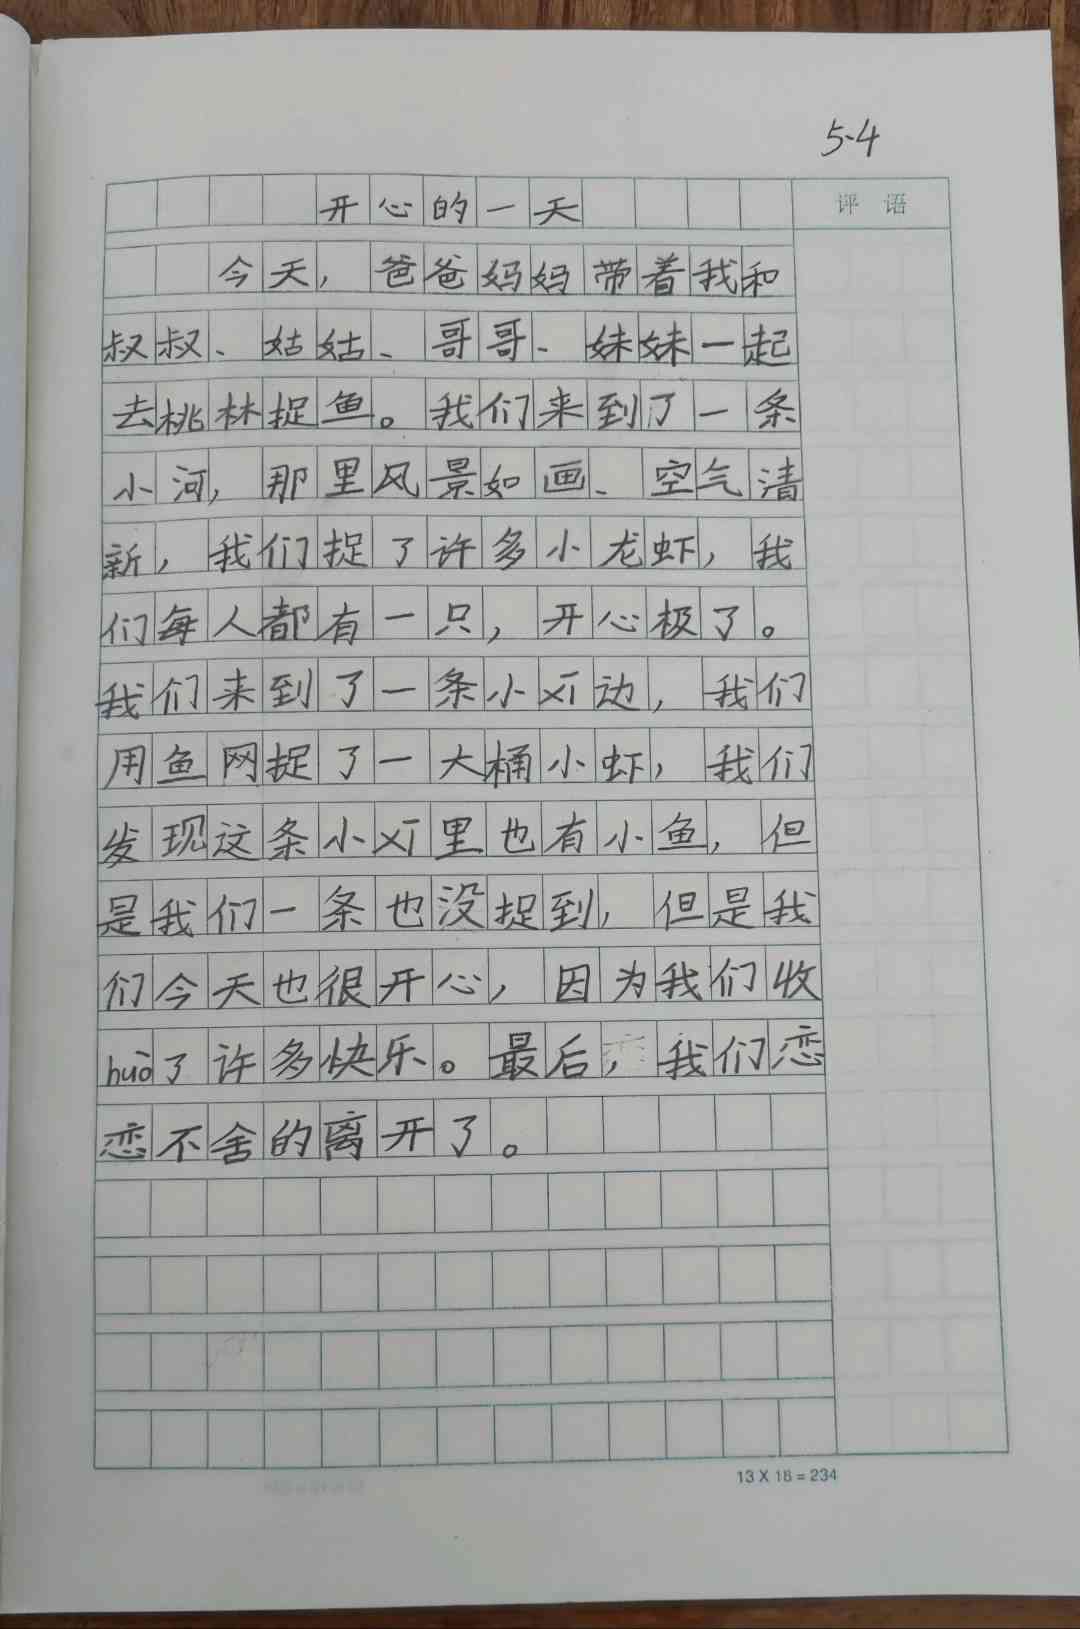 5-4
开心的一天
评语
今天，爸爸妈妈带着我和
叔叔、姑姑、哥哥、妹妹一起
去桃林捉鱼。我们来到了一条
小河，那里风景如画、空气清
新，我们捉了许多小龙虾，我
们每人都有一只，开心极了。
我们来到了一条小边，我们
用鱼网捉了一大桶小虾，我们
发现这条小里也有小鱼，但
是我们一条也没捉到，但是我
们今天也很开心，因为我们收
huò了许多快乐。最后，我们恋
恋不舍的离开了。
13 X 18 = 234